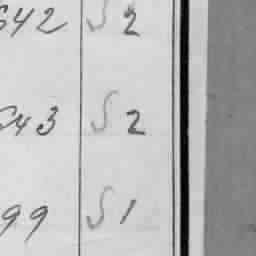 642 S 2
543 S 2
99 S 1